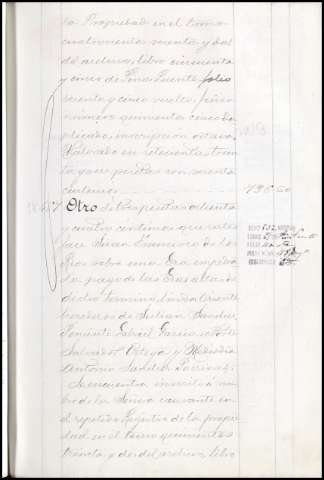 la Propiedad en el tomo
cuatrocientos sesenta y dos
del archivo, libro cincuenta
y cinco de Pinos Puente, folio
sesenta y cinco vuelto, finca
número quinientos cinco du
plicado, inscripción octava.
Valorado en setecientas trein
ta y seis pesetas con sesenta
céntimos 736 60
Otro de tres pesetas ochenta
y cuatro céntimos que sales
face Juan Francisco de los
Rios sobre una Era empedra
da, pago de las Eras altas de
dicho término, linda Oriente
herederos de Julian Sanchez
Poniente Gabriel Garcia, Norte
Salvador Ortega y Mediodia
Antonio Sanchez
Se encuentra inscrito a nom
bre de la Señora causante en
el repetido Registro de la propie
dad en el tomo quinientos
treinta y dos del archivo, libro